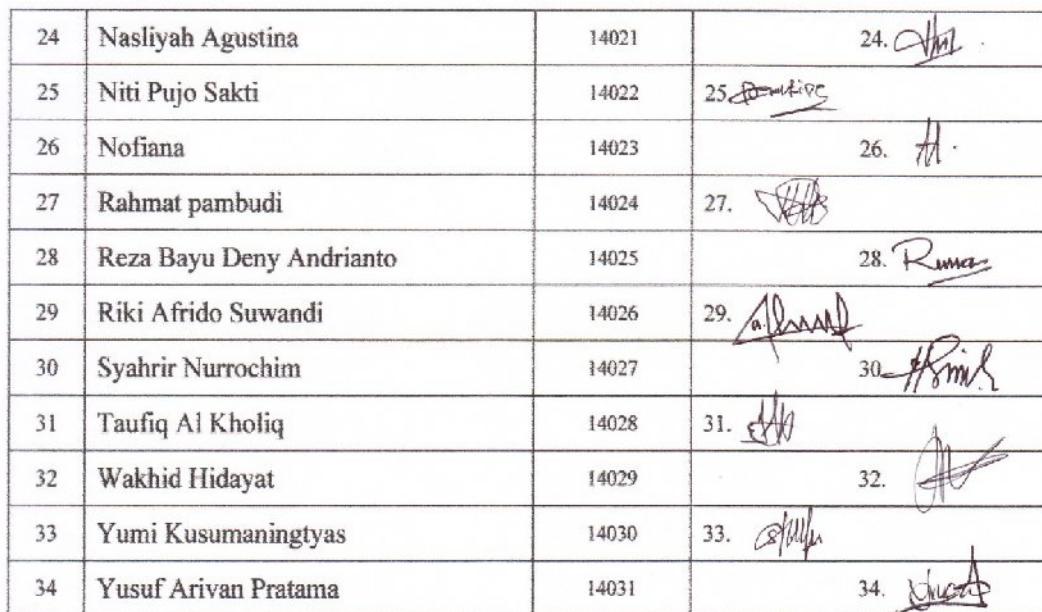 24 Nasliyah Agustina 14021 24.
25 Niti Pujo Sakti 14022 25
26 Nofiana 14023 26.
27 Rahmat pambudi 14024 27.
28 Reza Bayu Deny Andrianto 14025 28.
29 Riki Afrido Suwandi 14026 29.
30 Syahrir Nurrochim 14027 30
31 Taufiq Al Kholiq 14028 31.
32 Wakhid Hidayat 14029 32.
33 Yumi Kusumaningtyas 14030 33.
34 Yusuf Arivan Pratama 14031 34.